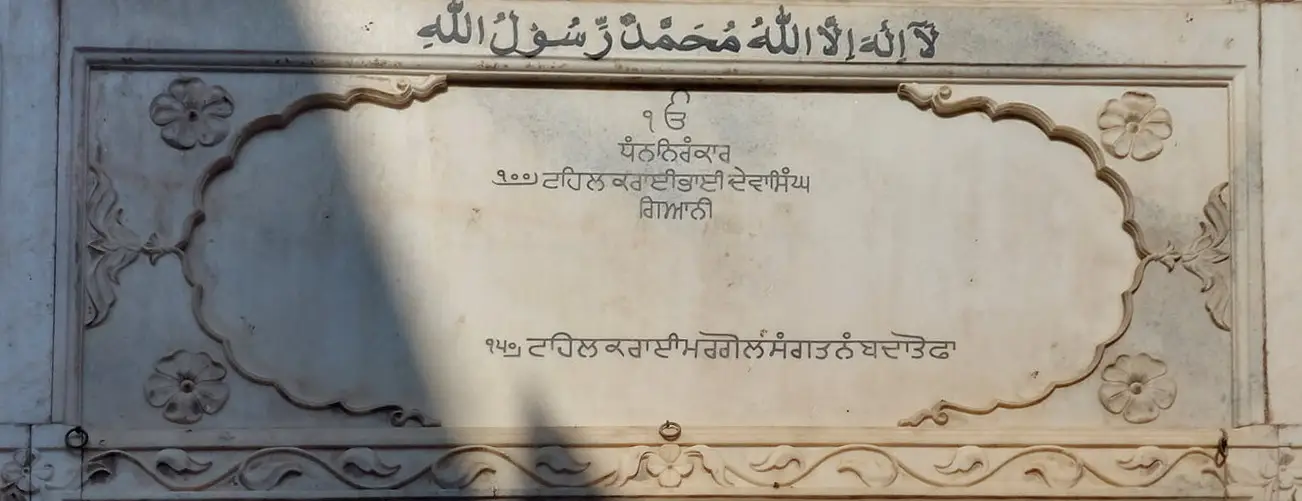 لَآ اِلٰهَ اِلَّا اللّٰهُ مُحَمَّدٌ رَّسُوْلُ اللّٰهِ
੧ਓ
ਧੰਨਨਿਰੰਕਾਰ
੧੦੦) ਟਹਿਲ ਕਰਾਈਭਾਈ ਦੇਵਾਸਿੰਘ
ਗਿਆਨੀ
੧੫੦) ਟਹਿਲ ਕਰਾਈਮਰਗੋਲ ਸੰਗਤ ਨੰ ਬਦਾਤੋਢਾ